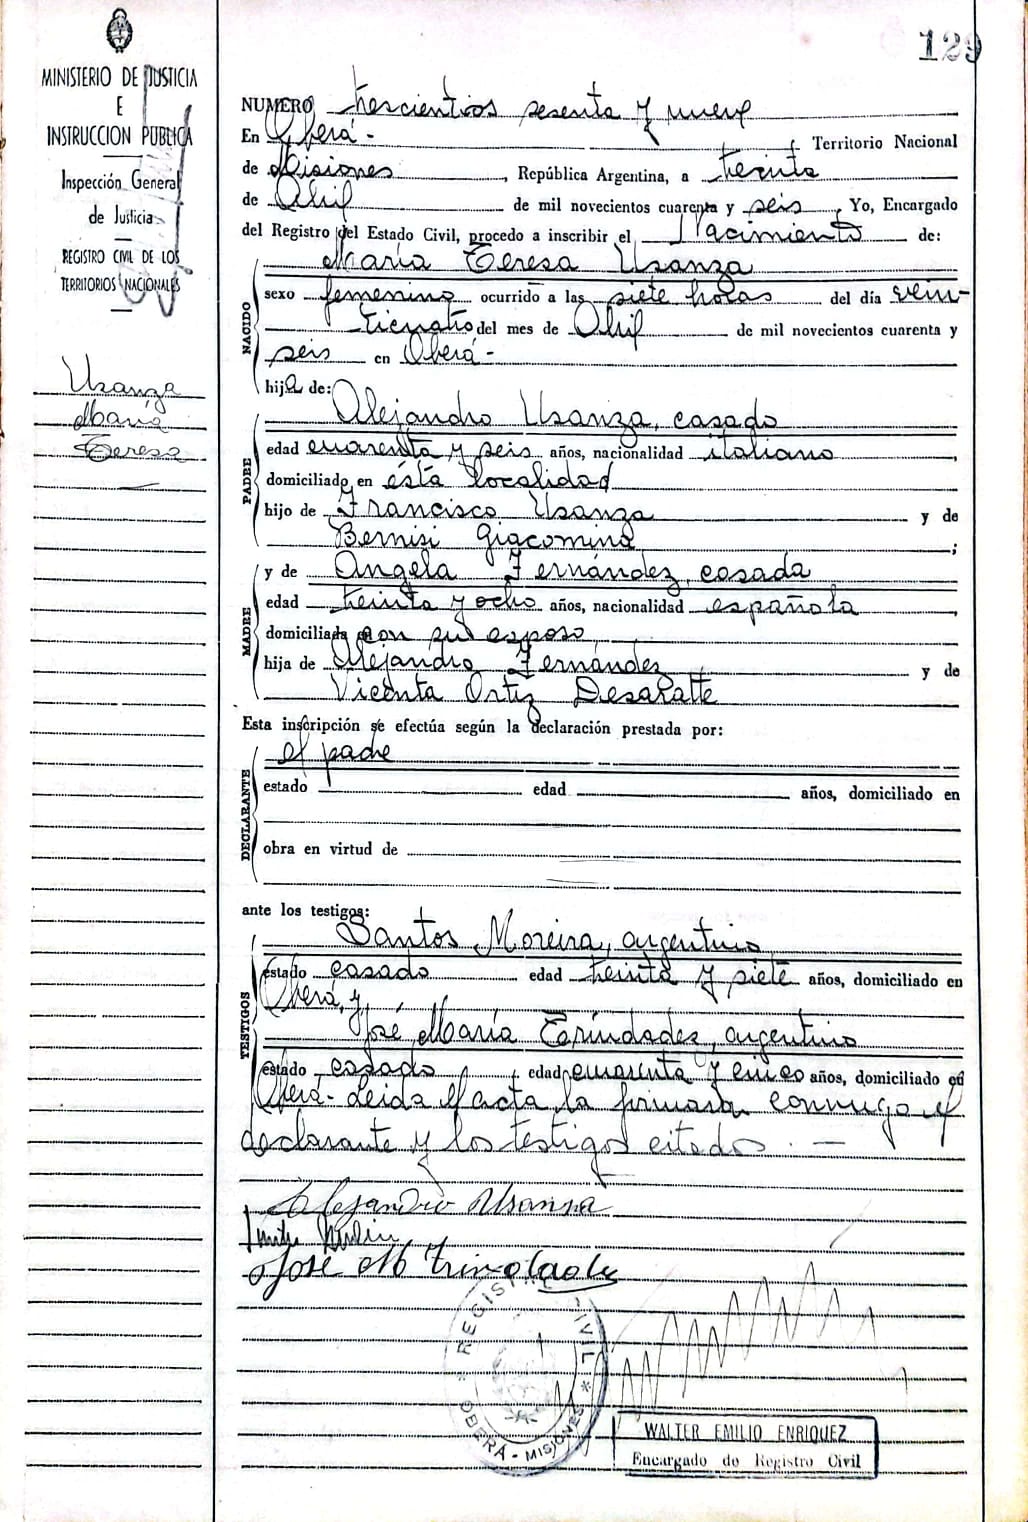 129
MINISTERIO DE JUSTICIA
E
INSTRUCCION PUBLICA
Inspección General
de Justicia
REGISTRO CIVIL DE LOS
TERRITORIOS NACIONALES
Usanza
María
Teresa
NUMERO trescientos sesenta y nueve
En Oberá.- Territorio Nacional
de Misiones, República Argentina, a treinta
de Abril de mil novecientos cuarenta y seis, Yo, Encargado
del Registro del Estado Civil, procedo a inscribir el Nacimiento de:
María Teresa Usanza
NACIDO
sexo femenino ocurrido a las siete horas del día vein-
ticuatro del mes de Abril de mil novecientos cuarenta y
seis en Oberá-
hija de:
Alejandro Usanza, casado
PADRE
edad cuarenta y seis años, nacionalidad italiano,
domiciliado en ésta localidad
hijo de Francisco Usanza y de
Bernisi Giacomina;
y de Angela Fernández, casada
MADRE
edad treinta y ocho años, nacionalidad española,
domiciliada con su esposo
hija de Alejandro Fernández y de
Vicenta Ortiz
Esta inscripción se efectúa según la declaración prestada por:
el padre
DECLARANTE
estado edad años, domiciliado en
obra en virtud de
ante los testigos:
Santos Moreira, argentino
TESTIGOS
estado casado edad treinta y siete años, domiciliado en
Oberá, y
José María argentino
estado casado edad cuarenta y cinco años, domiciliado en
Oberá- Leida el acta la firmaron conmigo el
declarante y los testigos citados. —
Alejandro Usanza
José M
REGISTRO CIVIL
OBERÁ - MISIONES
WALTER EMILIO ENRIQUEZ
Encargado de Registro Civil